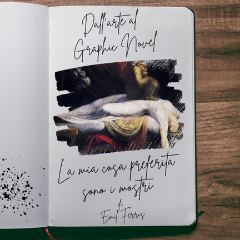 Dall'arte al
Graphic Novel
La mia cosa preferita
sono i mostri
di
Emil Ferris